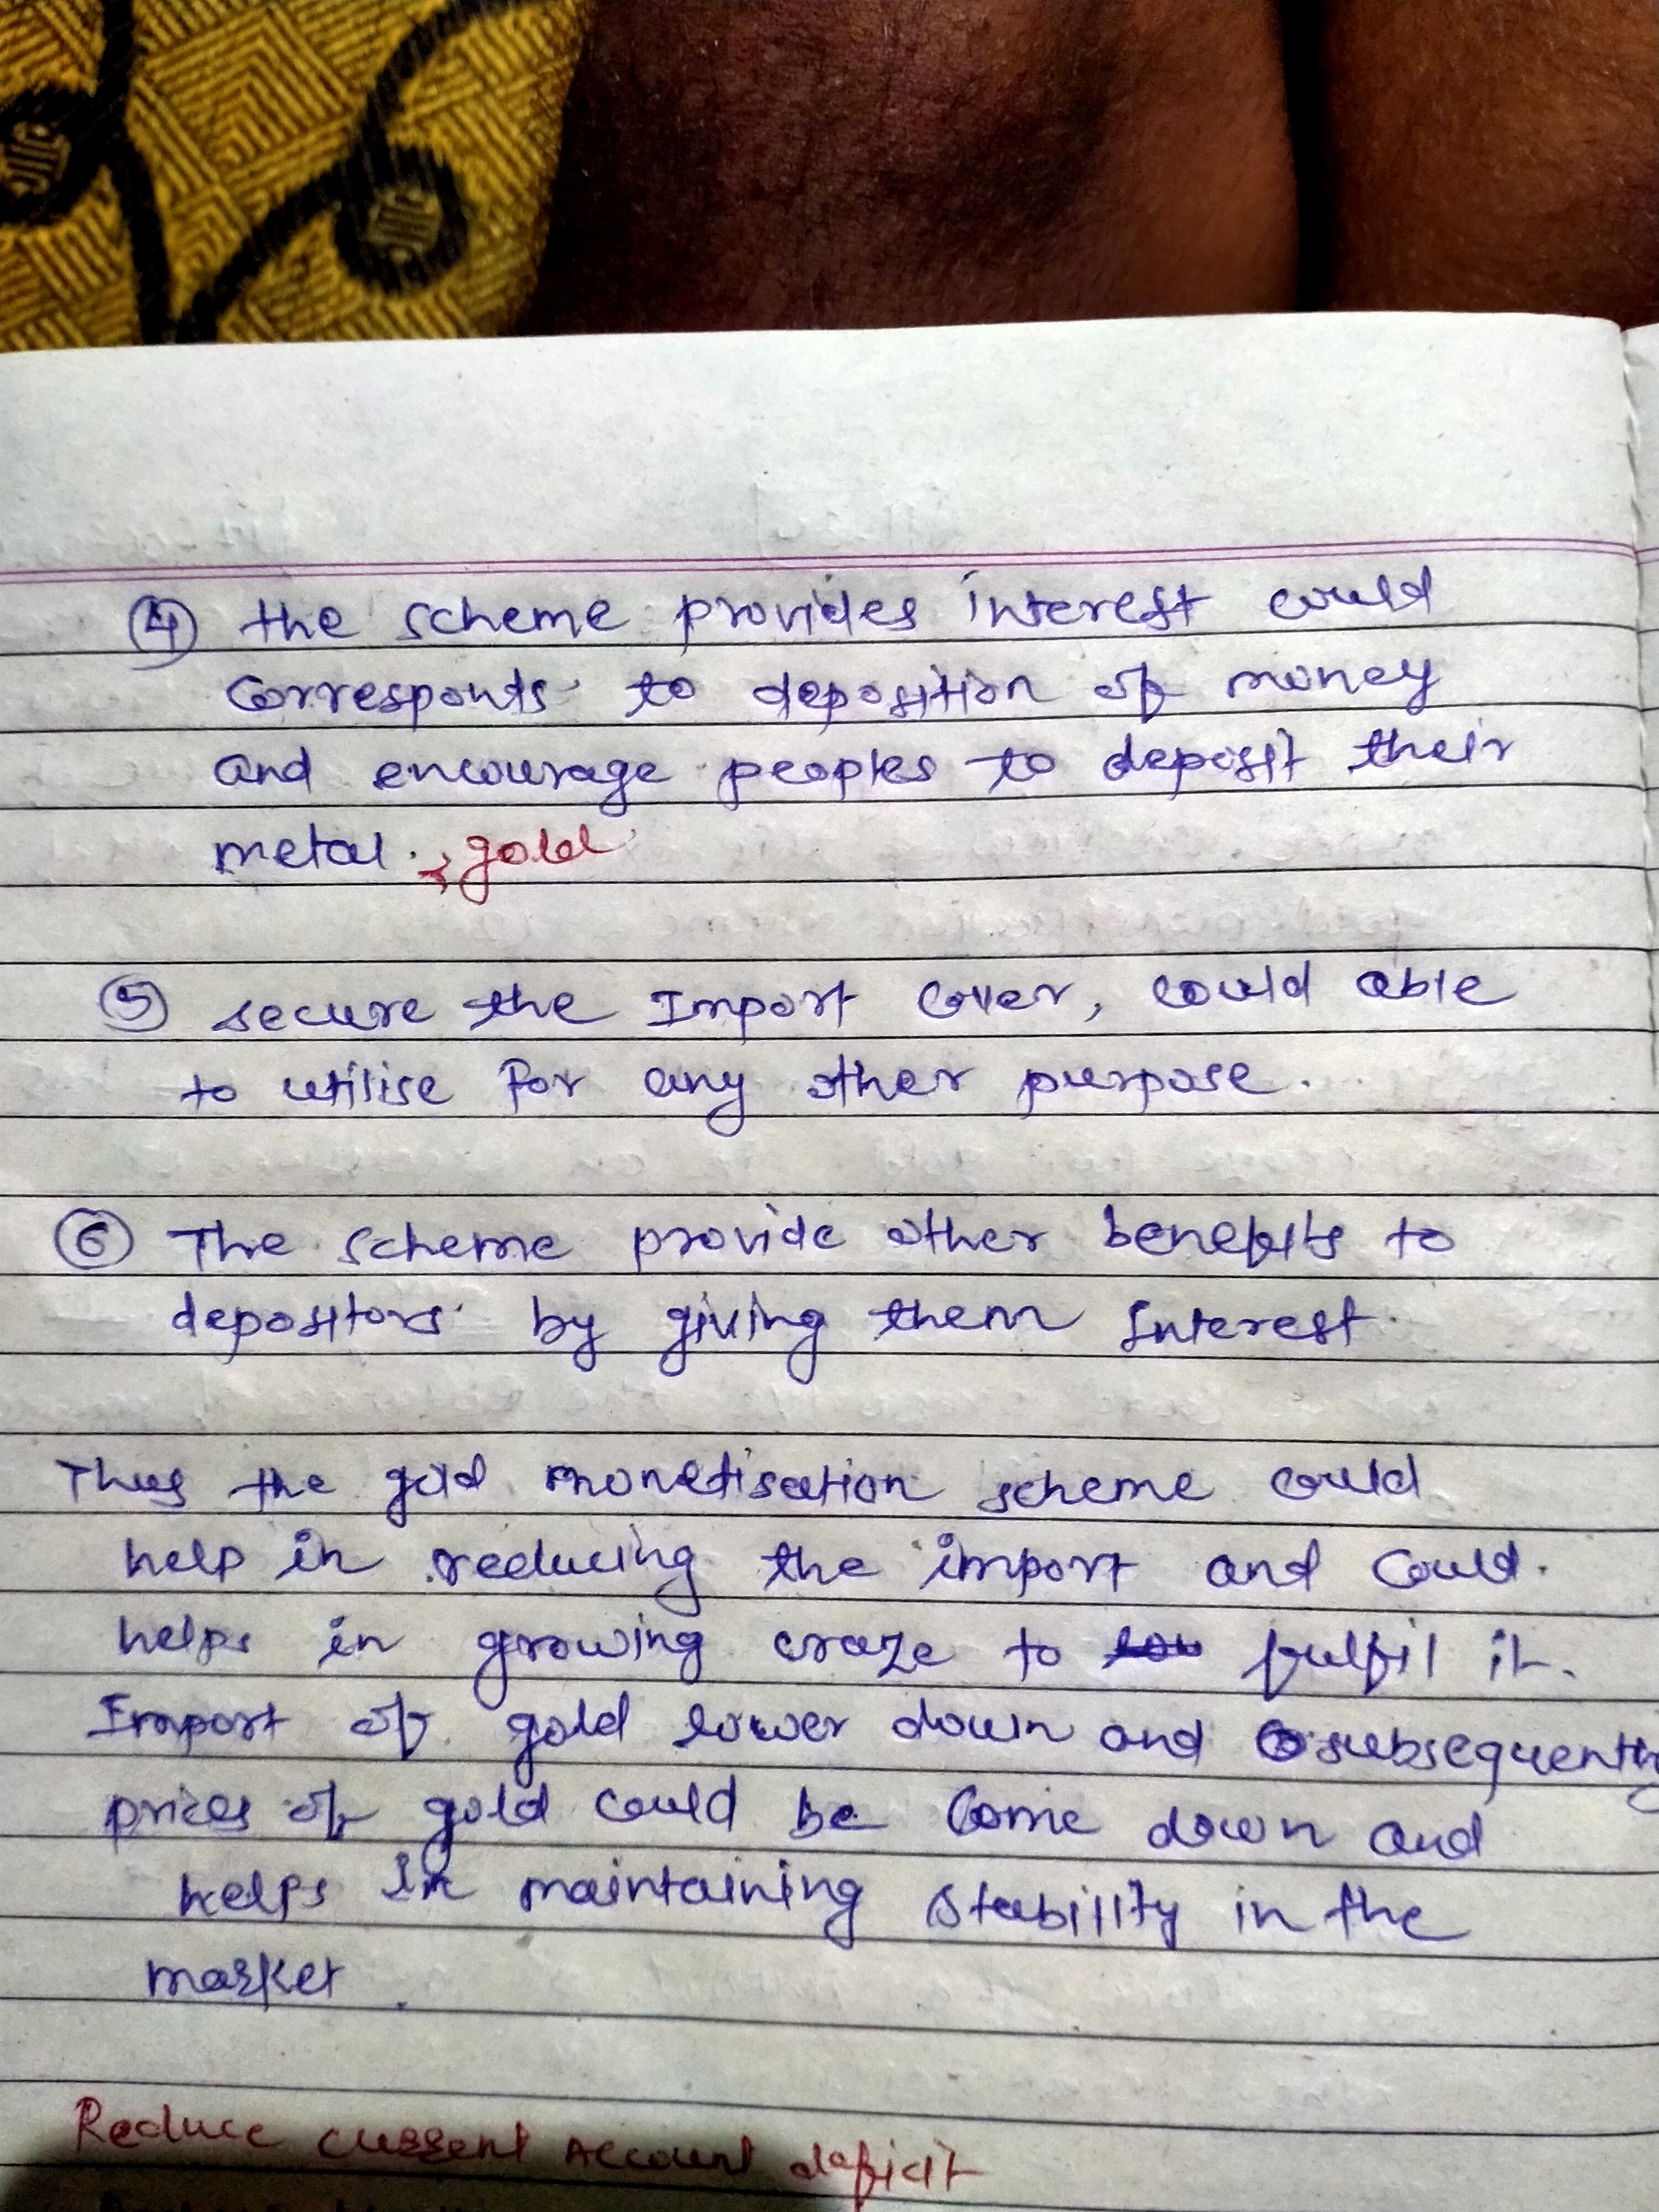 ④ the scheme provides interest could
corresponts to deposition of money
and encourage peoples to deposit their
metal. , gold
⑤ secure the Import cover, could able
to utilise for any other purpose.
⑥ The scheme provide other benefits to
depositors by giving them Interest.
Thus the gold monetisation scheme could
help in reducing the import and could.
helps in growing craze to fulfil it.
Import of gold lower down and subsequently
prices of gold could be come down and
helps in maintaining stability in the
market.
Reduce current Account deficit